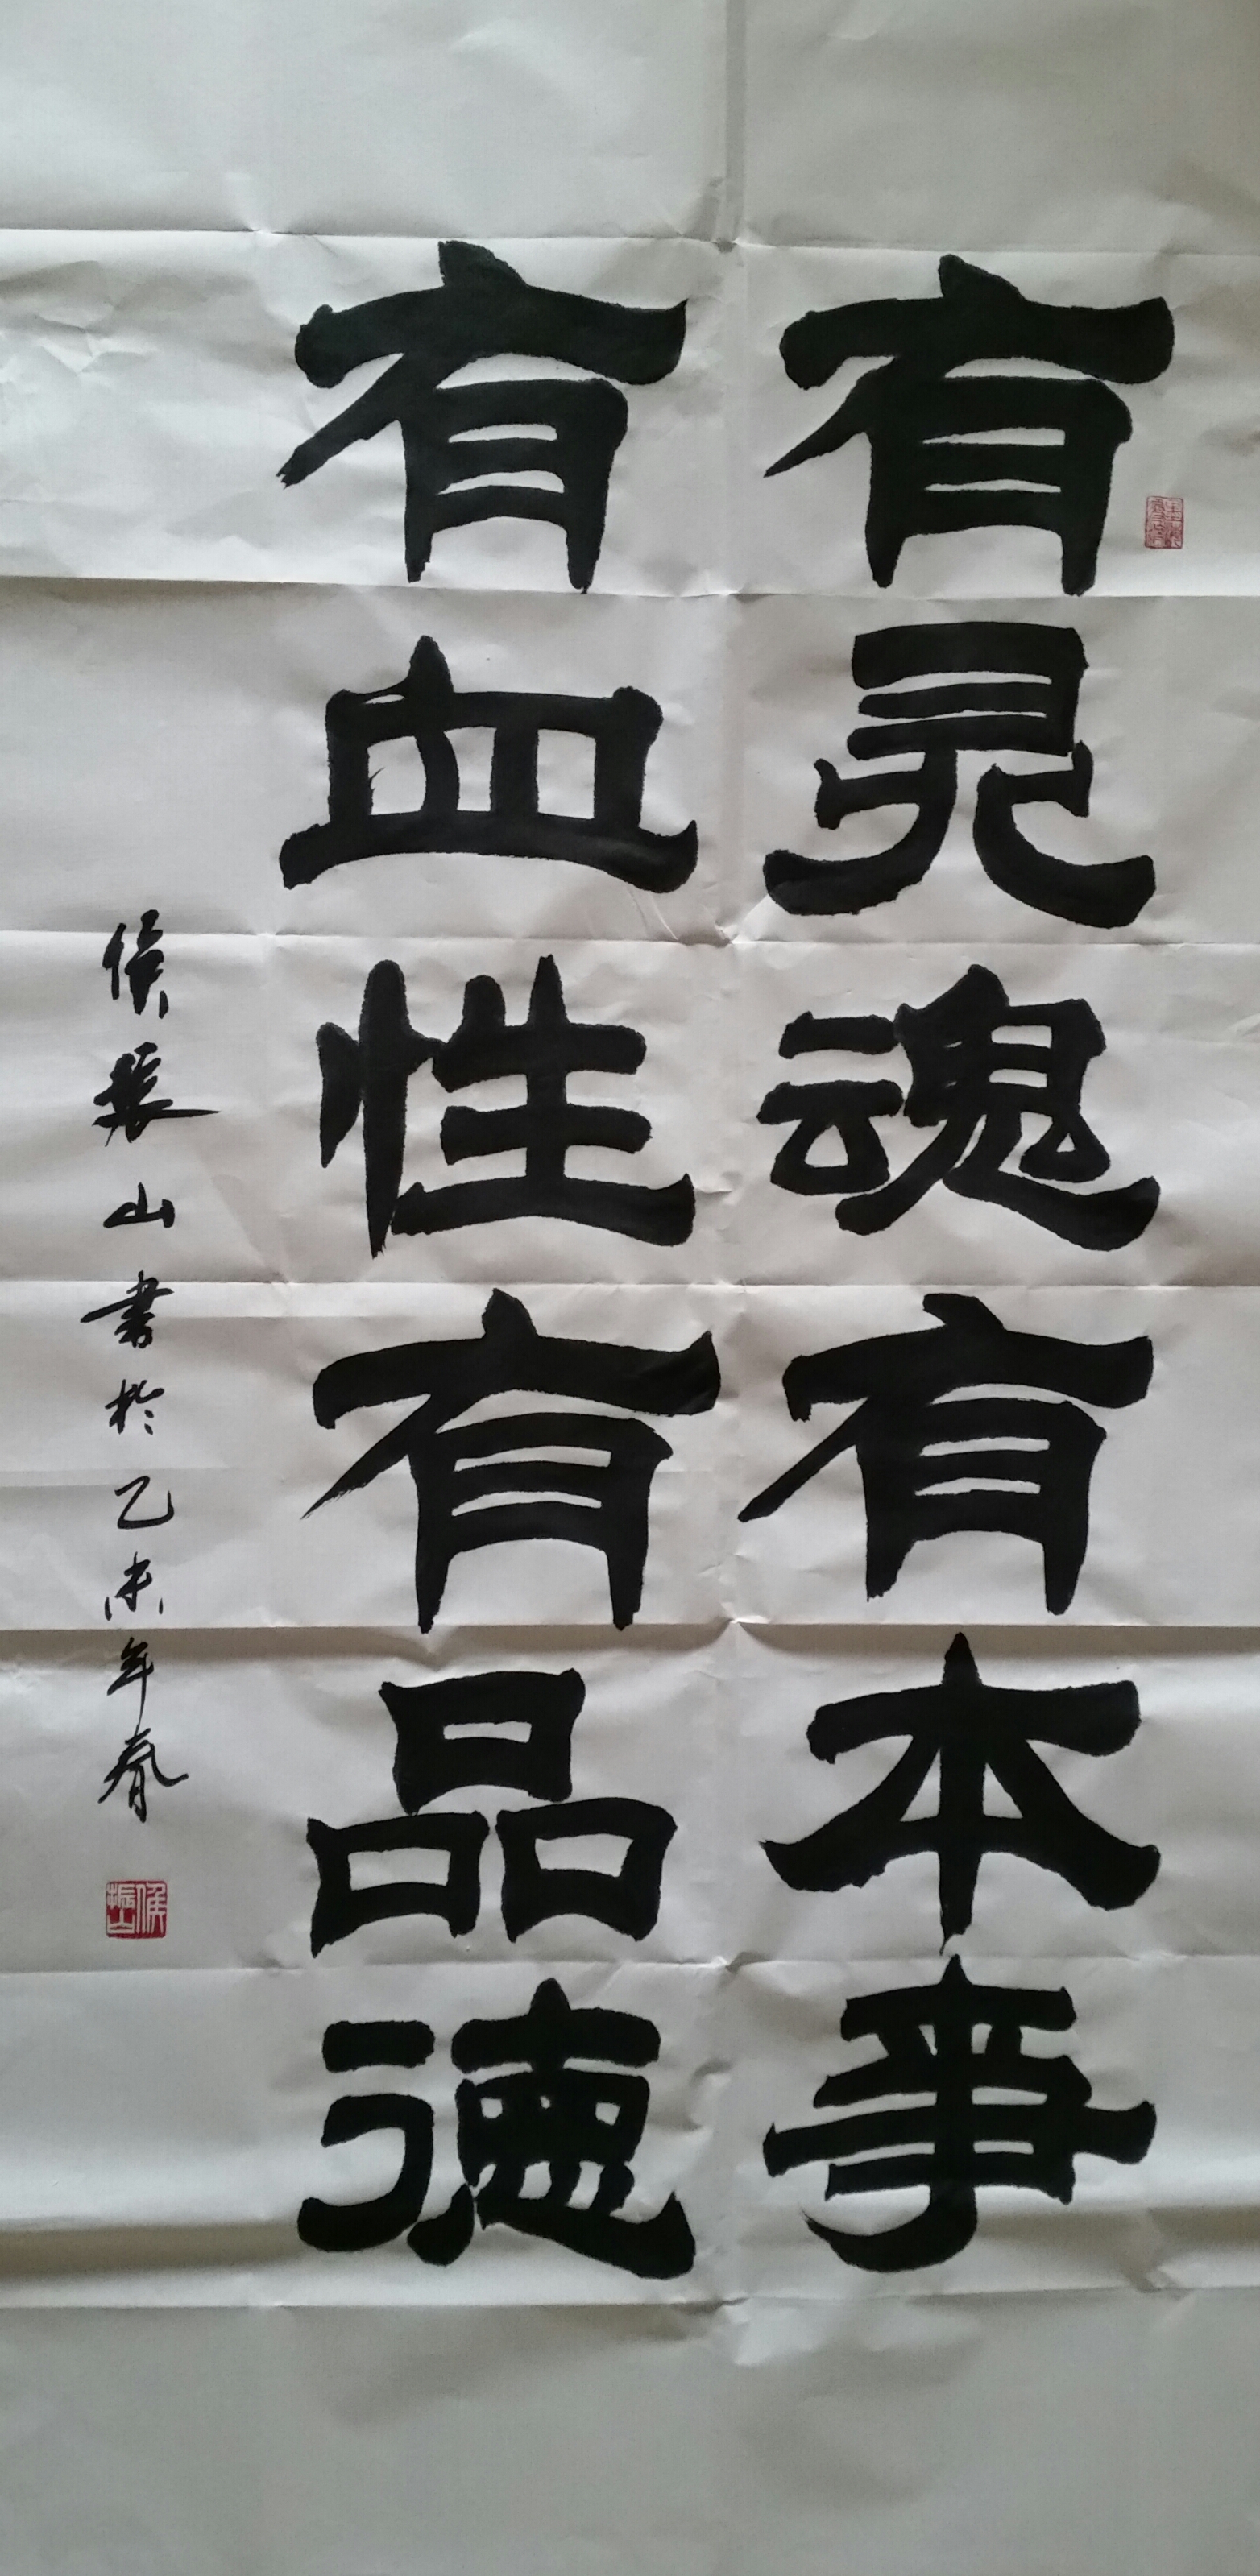 有灵魂有本事
有血性有品德
侯振山書於乙未年春
侯振山